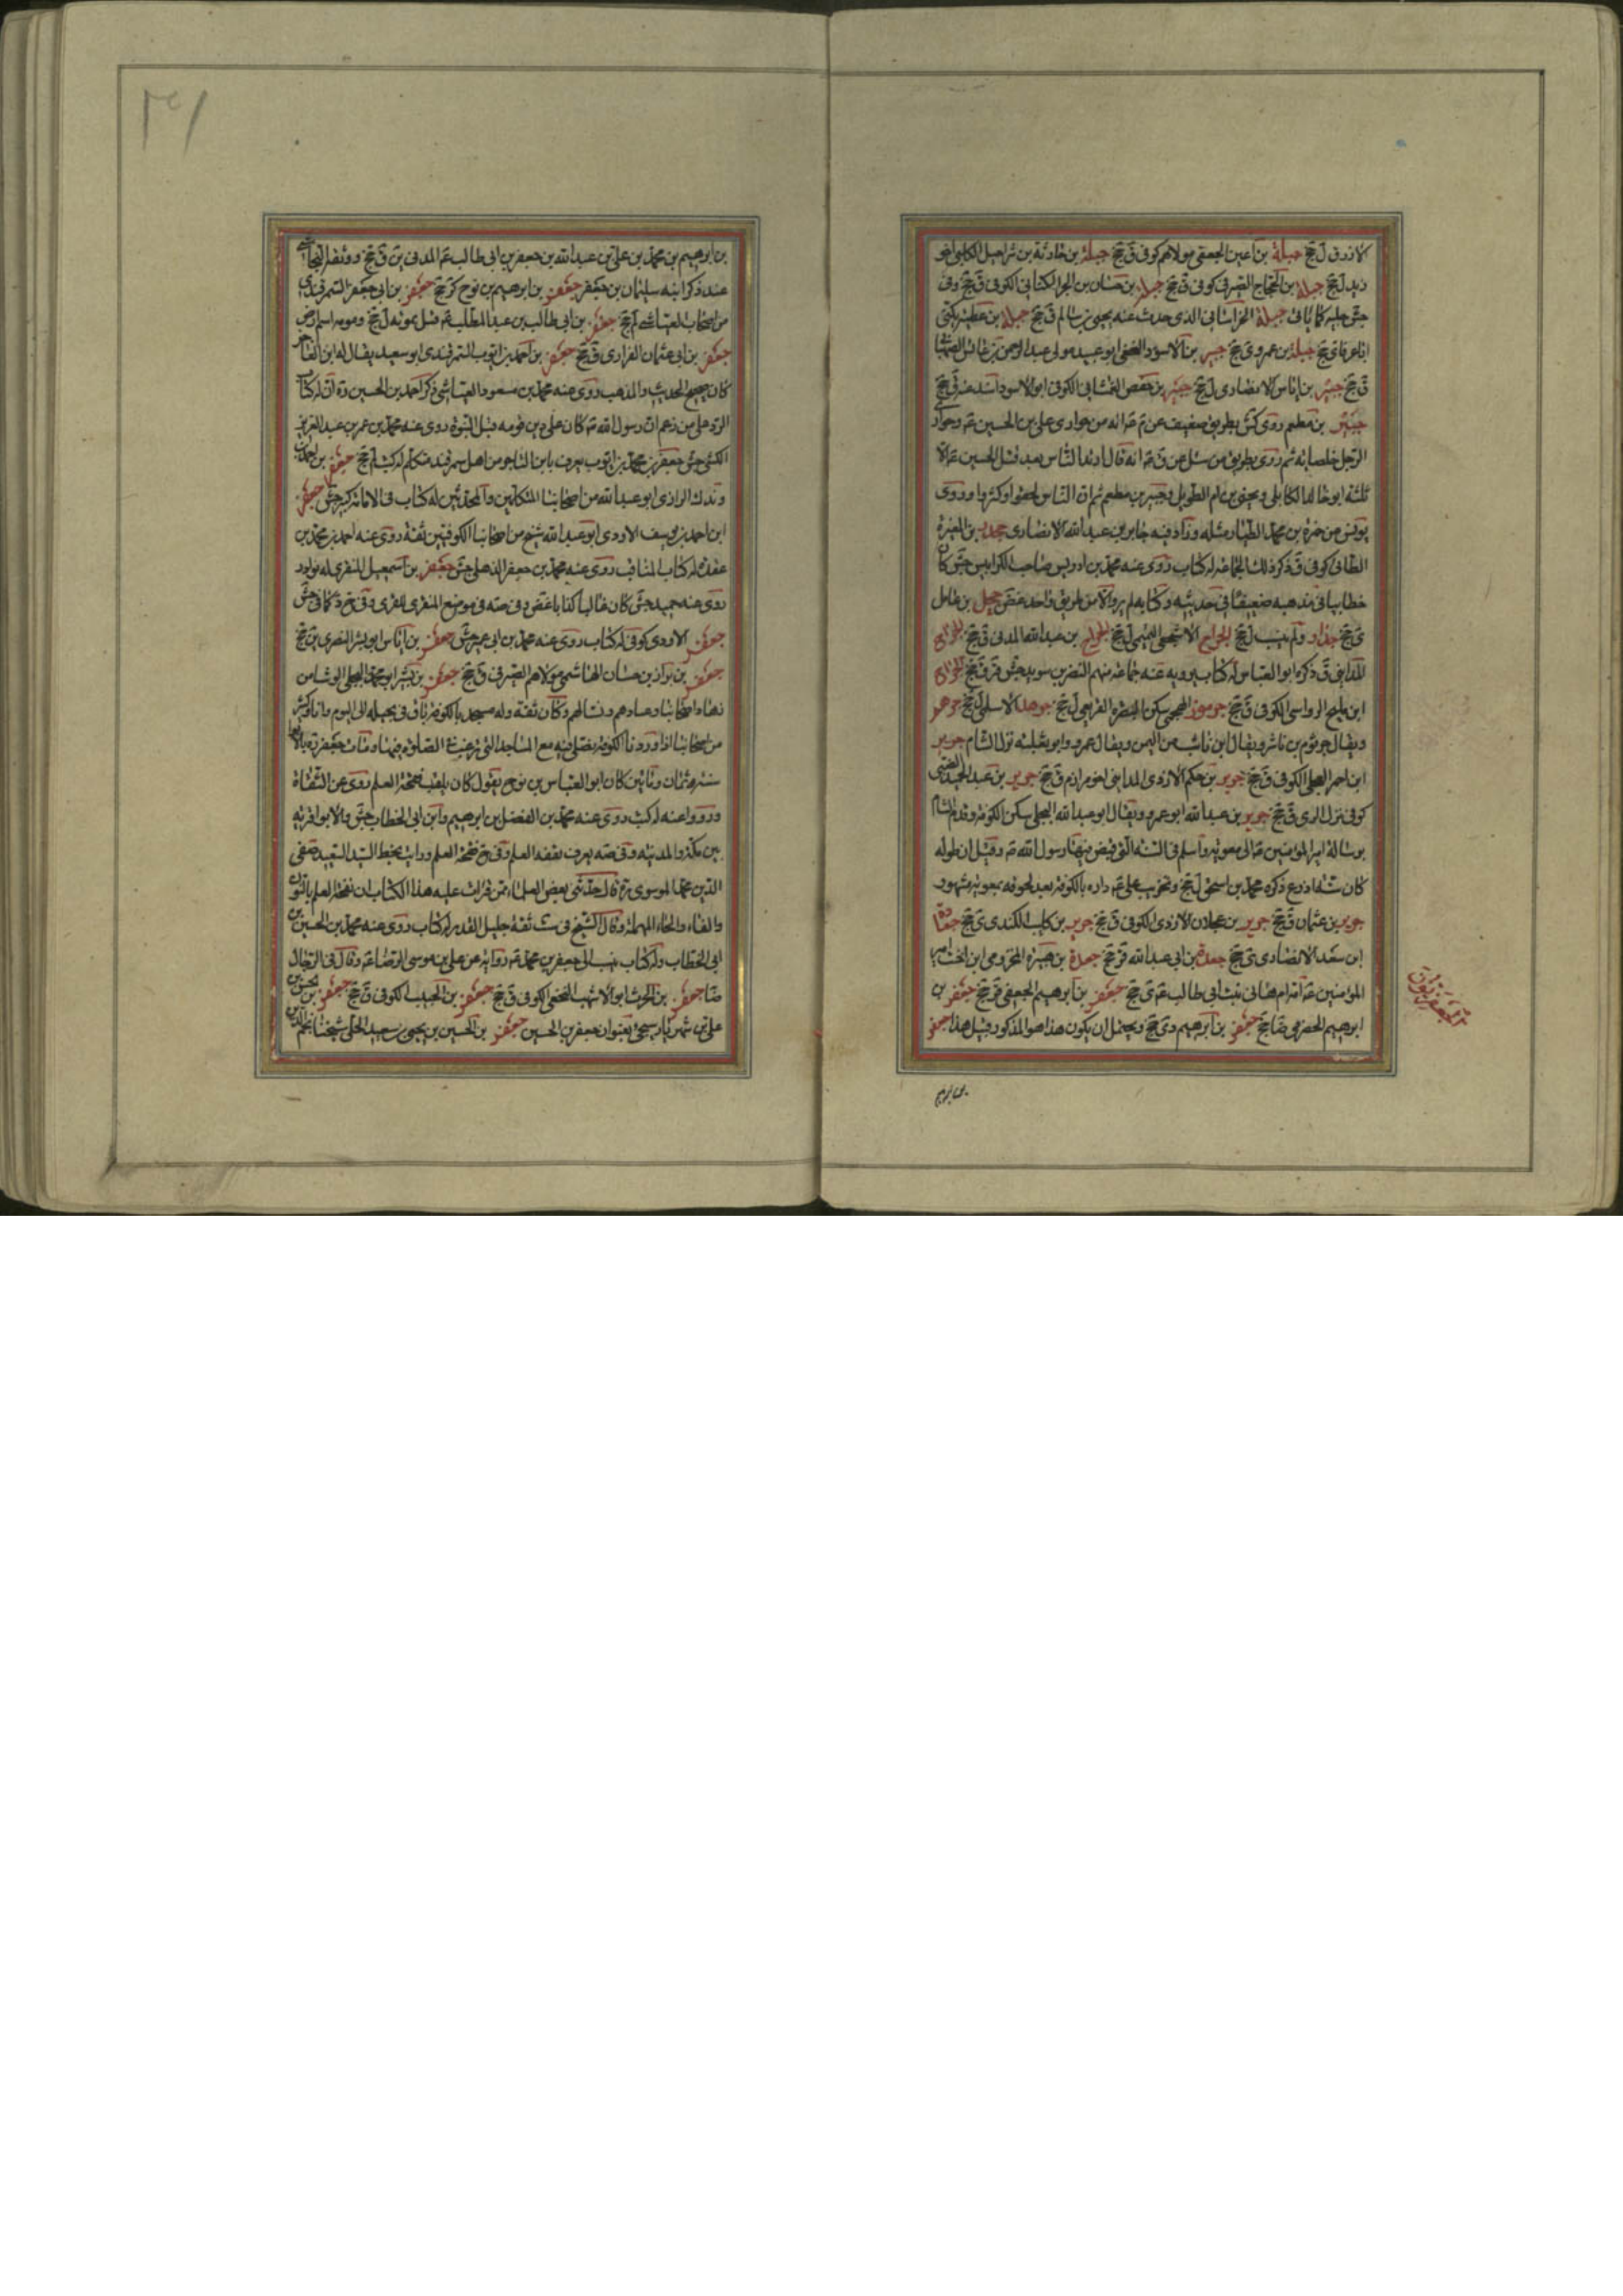 الازرق ل جخ جبلة بن اعين الجعفي مولاهم كوفي ق جخ جبلة بن حارثة بن شراحيل الكلبي اخو
زيد ل جخ جبلة بن الحجاج الصيرفي كوفي ق جخ جبلة بن حنان بن الحر الكناني الكوفي ق جخ وفي
جبلة الخراساني الذي حدث عنه يحيى بن سالم ق جخ جبلة بن عطية يكنى
ابا عرفا ى جخ جبلة بن عمرو ى جخ جبير بن الاسود النخعي ابو عبيد مولى عبد الرحمن بن عائش
ق جخ جبير بن اياس الانصاري ل جخ جبير بن حفص الغمشاني الكوفي ابو الاسود اسند عنه ق جخ
جبير بن مطعم روى كش بطريق ضعيف عن م ع انه من حواري علي بن الحسين ع
ثم روى بطريق من سئل عن ق ع انه قال ارتد الناس بعد قتل الحسين ع الا
ثلثة ابو خالد الكابلي ويحيى بن ام الطويل وجبير بن مطعم ثم ان الناس لحقوا وكثروا وروى
يونس عن حمزة بن محمد الطيار مثله وزاد فيه جابر بن عبد الله الانصاري جحدر بن المغيرة
الطائي كوفي ق ذكر ذلك الجماعة له كتاب روى عنه محمد بن ادريس صاحب الكرابيس جش كان
خطابيا في مذهبه ضعيفا في حديثه وكتابه لم يرو الا من طريق واحد غض جميل بن عامل
ى جخ ولم ينسب ل جخ الجراح الاشجعي ل جخ الجراح بن عبد الله المدني ق جخ الجراح
المدايني ق ذكره ابو العباس له كتاب يرويه عنه جماعة منهم النضر بن سويد جش قر ق جخ الجراح
ابن مليح الرواسي الكوفي ق جخ جرموز الهجيمي سكن البصرة ل جخ جرهد الاسلمي ل جخ جرهم
ويقال جرثوم بن ناشر ويقال ابن ناشب من اليمن ويقال عمرو وابو ثعلبة نزل الشام جرير
ابن احمر العجلي الكوفي ق جخ جرير بن حكيم الازدي المدايني اخو مرازم ق جخ جرير بن عبد الحميد الضبي
كوفي نزل الري ق جخ جرير بن عبد الله ابو عمرو ويقال ابو عبد الله البجلي سكن الكوفة وقدم الشام
برسالة امير المؤمنين ع الى معوية واسلم في السنة التي قبض فيها رسول الله ص وقيل ان طوله
كان ستة اذرع ذكره محمد بن اسحق ل جخ وتخريب علي ع داره بالكوفة بعد لحوقه بمعوية مشهور
جرير بن عثمان ق جخ جرير بن عجلان الازدي الكوفي ق جخ جرير بن كليب الكندي ى جخ
ابن سعد الانصاري ى جخ جعدة بن ابي عبد الله قر جخ جعدة بن هبيرة المخزومي ابن اخت امير
المؤمنين ع امه ام هاني بنت ابي طالب ع ى جخ جعفر بن ابرهيم الجعفي قر جخ جعفر بن
ابرهيم الحضرمي ضا جخ جعفر بن ابرهيم دى جخ ويحتمل ان يكون هذا هو المذكور قبيل هذا جعفر
بن ابرهيم
بن ابرهيم بن محمد بن علي بن عبد الله بن جعفر بن ابي طالب ع المدني ين ق جخ ووثقه النجاشي
عند ذكر ابنه سليمان بن جعفر جعفر بن ابرهيم بن نوح كر جخ جعفر بن ابي جعفر السمرقندي
من اصحاب العياشي لم جخ جعفر بن ابي طالب بن عبد المطلب ع قتل بموتة ل جخ
جعفر بن ابي عثمان الفزاري ق جخ جعفر بن احمد بن ايوب السمرقندي ابو سعيد يقال له ابن التاجر
كان صحيح الحديث والمذهب روى عنه محمد بن مسعود العياشي ذكر احمد بن الحسين ره ان له كتاب
الرد على من زعم ان رسول الله ص كان على دين قومه قبل النبوة روى عنه محمد بن عمر بن عبد العزيز
الكشي جش جعفر بن محمد بن ايوب يعرف بابن التاجر من اهل سمرقند متكلم له كتب لم جخ جعفر بن احمد بن
وندك الرازي ابو عبد الله من اصحابنا المتكلمين والمحدثين له كتاب في الامامة كبير جش جعفر
ابن احمد بن يوسف الاودي ابو عبد الله شيخ من اصحابنا الكوفيين ثقة روى عنه احمد بن محمد بن
عقدة له كتاب المناقب روى عنه محمد بن جعفر الذهلي جش جعفر بن اسمعيل المنقري له نوادر
روى عنه حميد جش كان غاليا كذابا غض
جعفر الاودي كوفي له كتاب روى عنه محمد بن ابي عمير جش جعفر بن اياس ابو بشر النصري ين جخ
جعفر بن بزاز بن حسان الهاشمي مولاهم الصيرفي ق جخ جعفر بن بشير ابو محمد البجلي الوشا من
زهاد اصحابنا وعبادهم ونساكهم وكان ثقة وله مسجد بالكوفة باق في بجيلة الى اليوم وانا وكثير
من اصحابنا اذا وردنا الكوفة نصلي فيه مع المساجد التي ترغب في الصلوة فيها ومات جعفر ره بالابواء
سنة ثمان ومائتين كان ابو العباس بن نوح يقول كان يلقب فقحة العلم روى عن الثقاة
ورووا عنه له كتب روى عنه محمد بن المفضل بن ابرهيم وابن ابي الخطاب جش والابوا قرية
بين مكة والمدينة وفي صه يعرف بقفة العلم وفي جخ نفحة العلم ورايت بخط السيد السعيد صفي
الدين محمد الموسوي ره قال حدثني بعض العلماء ممن قرات عليه هذا الكتاب ان نفحة العلم بالنون
والفاء والحاء المهملة وقال الشيخ في ست ثقة جليل القدر له كتاب روى عنه محمد بن الحسين بن
ابي الخطاب وله كتاب ينسب الى جعفر بن محمد ع رواية عن علي بن موسى الرضا ع وقال في الرجال
ضا جعفر بن الحرث ابو الاشهب النخعي الكوفي ق جخ جعفر بن الحبيب الكوفي ق جخ جعفر بن
علي بن شهريار سيجئ بعنوان جعفر بن الحسين جعفر بن الحسين بن يحيى بن سعيد الحلي شيخنا نجم الدين